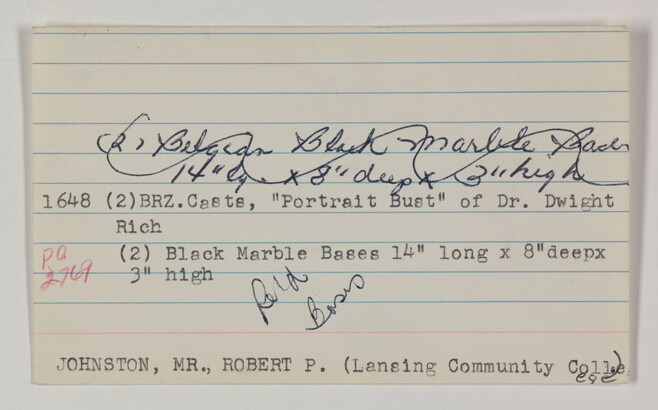 (2) Belgian Black Marble Bases
14" lg x 8" deep x 3" high
1648 (2)BRZ.Casts, "Portrait Bust" of Dr. Dwight
Rich
(2) Black Marble Bases 14" long x 8"deepx
3" high
PQ
2769
Bases
JOHNSTON, MR., ROBERT P. (Lansing Community Colle
ege)